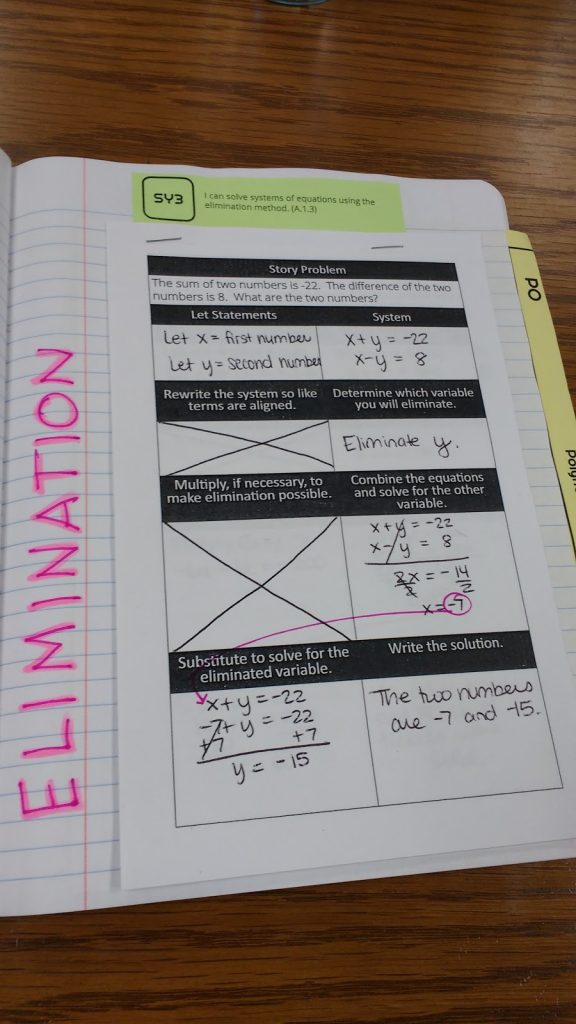 SY3
I can solve systems of equations using the
elimination method. (A.1.3)
ELIMINATION
PO
Story Problem
The sum of two numbers is -22. The difference of the two
numbers is 8. What are the two numbers?
Let Statements
System
Let x = first number
Let y = second number
x + y = -22
x - y = 8
Rewrite the system so like
terms are aligned.
Determine which variable
you will eliminate.
Eliminate y.
Multiply, if necessary, to
make elimination possible.
Combine the equations
and solve for the other
variable.
x + y = -22
x - y = 8
2x = -14
2 2
x = -7
Substitute to solve for the
eliminated variable.
x + y = -22
-7 + y = -22
+7 +7
y = -15
Write the solution.
The two numbers
are -7 and -15.